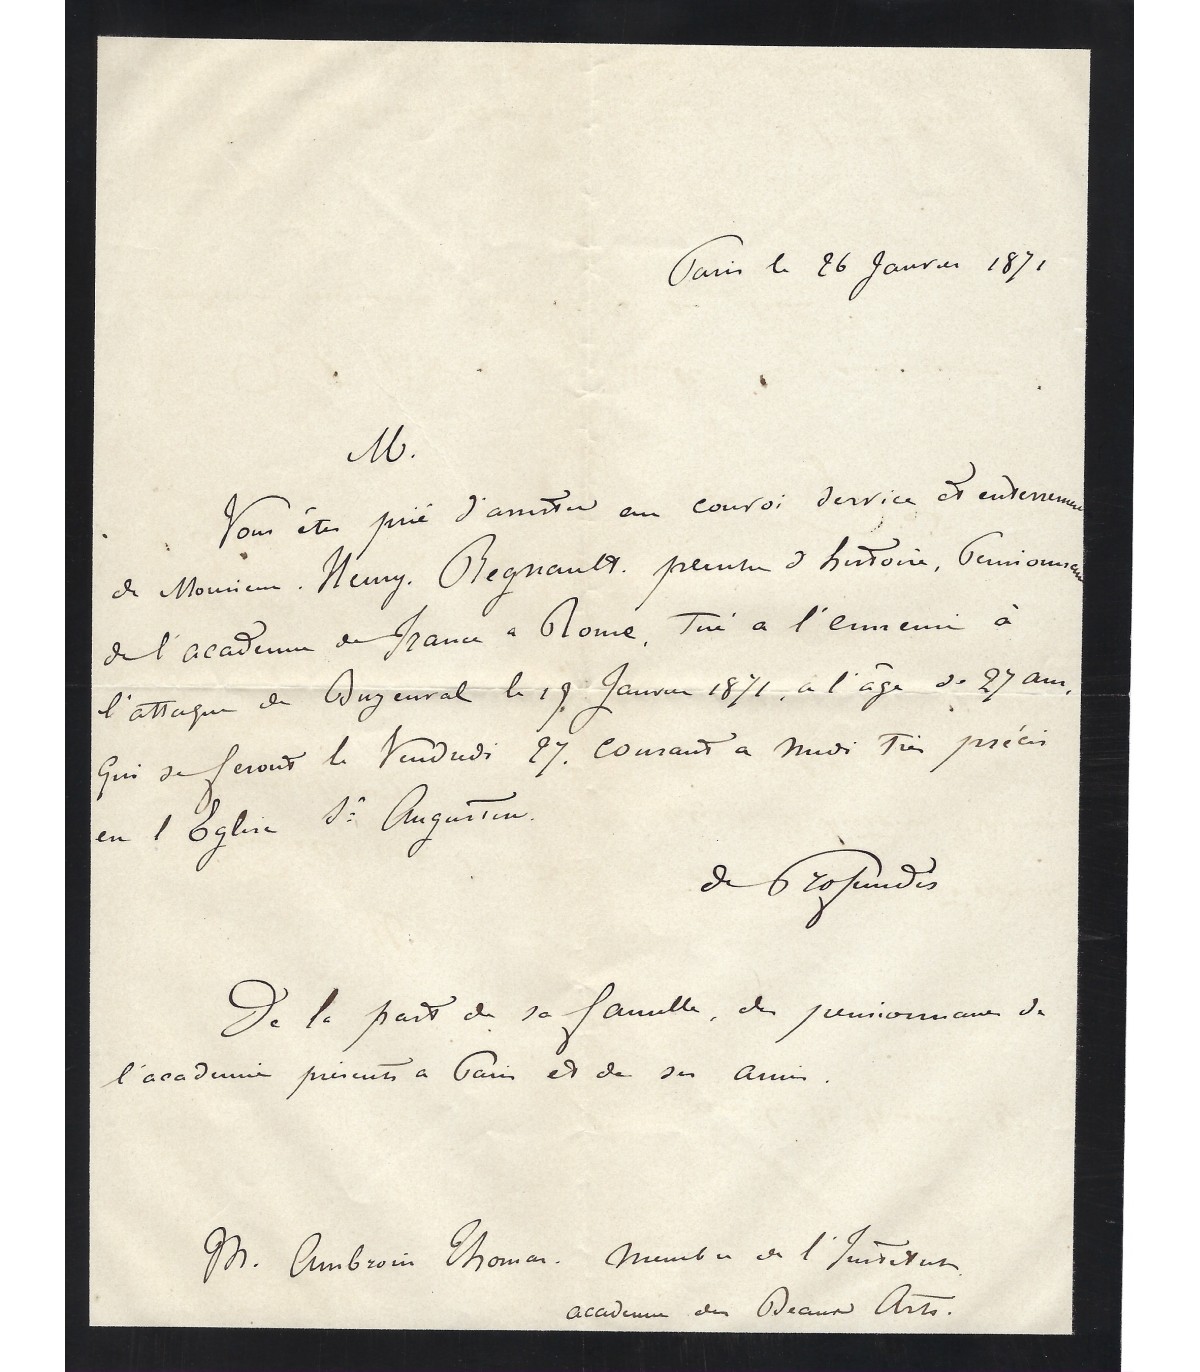 Paris le 26 Janvier 1871
M.
Vous êtes prié d'assister au convoi service et enterrement
de Monsieur. Henry. Regnault. peintre d'histoire, Pensionnaire
de l'académie de france a Rome, tué a l'ennemi à
l'attaque de Buzenval le 19 Janvier 1871, a l'âge de 27 ans,
Qui se feront le Vendredi 27. courant a midi très précis
en l'Eglise St Augustin.
de Profundis
De la part de sa famille, des pensionnaires de
l'académie présents a Paris et de ses amis.
M. Ambroise Thomas. membre de l'Institut
académie des Beaux Arts.